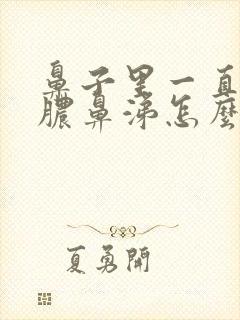 鼻子里一直
膿鼻涕怎麼
夏勇開